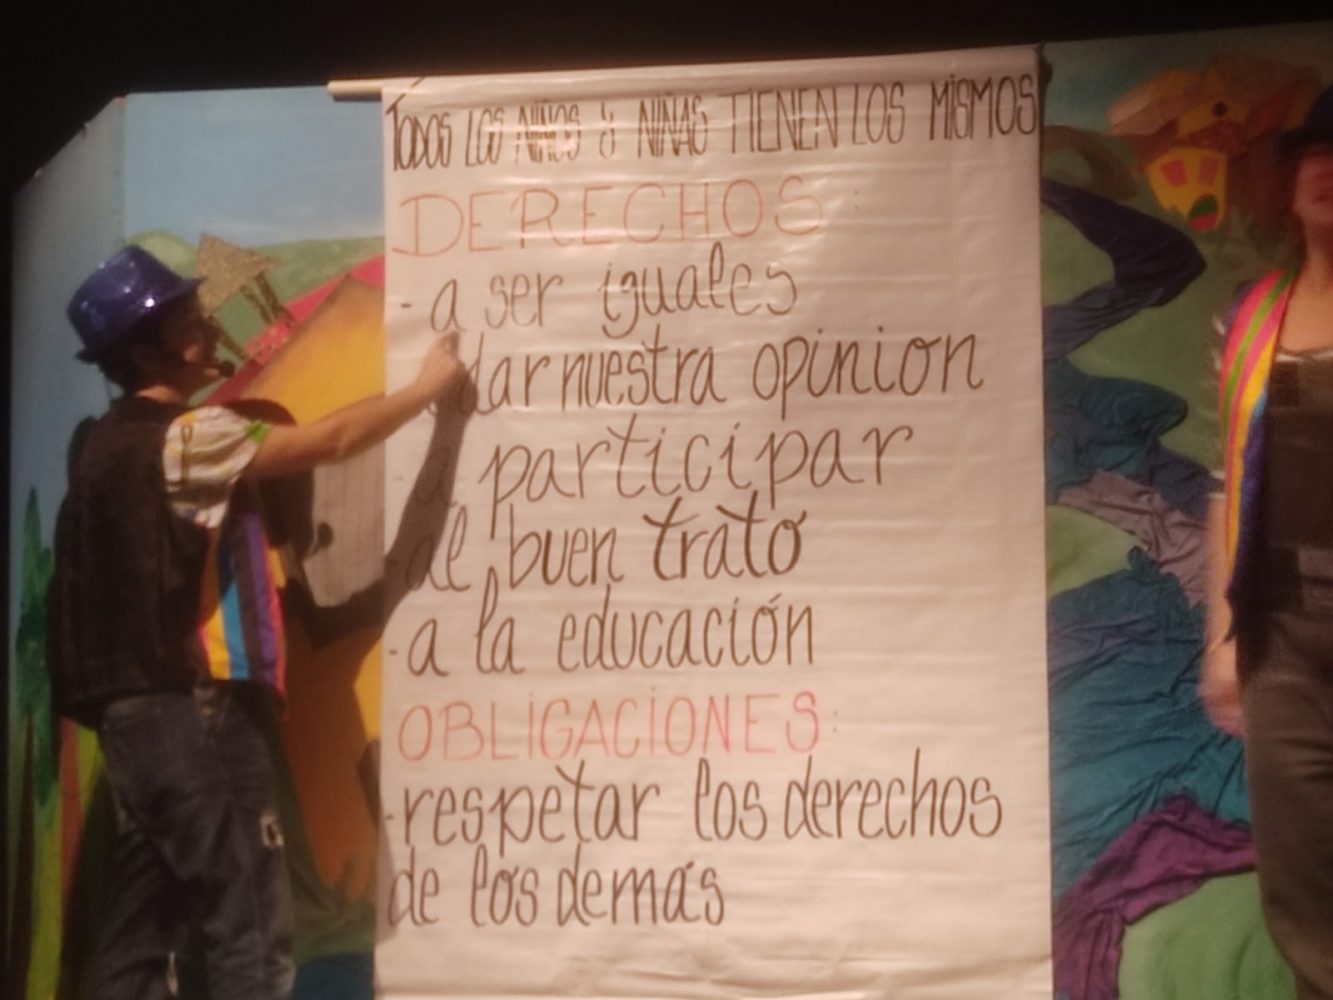 TODOS LOS NIÑOS & NIÑAS TIENEN LOS MISMOS
DERECHOS:
- a ser iguales
dar nuestra opinion
- a participar
- al buen trato
- a la educación
OBLIGACIONES:
- respetar los derechos
de los demás